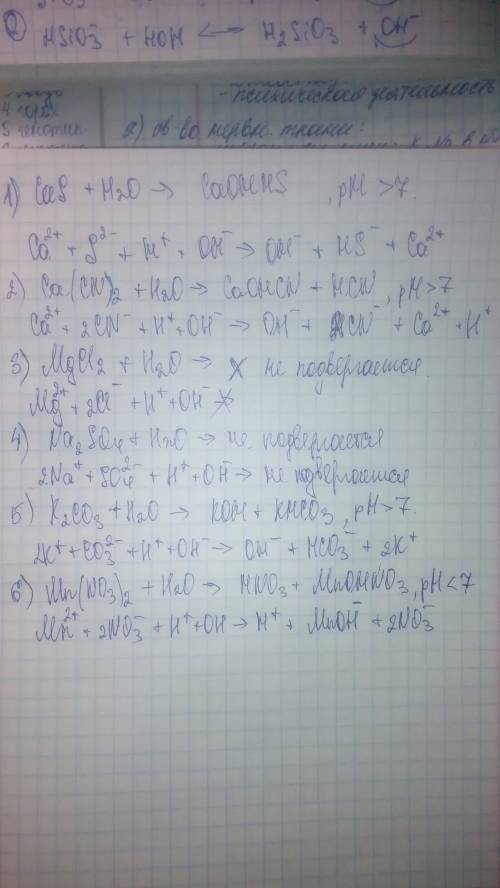 ② HSiO₃⁻ + HOH <--> H₂SiO₃ + OH⁻
- психическая деятельность
4
5
2) св-во нервн. ткани:
1) CaS + H₂O → CaOHHS , pH >7.
Ca²⁺ + S²⁻ + H⁺ + OH⁻ → OH⁻ + HS⁻ + Ca²⁺
2) Ca(CN)₂ + H₂O → CaOHCN + HCN, pH>7
Ca²⁺ + 2CN⁻ + H⁺+OH⁻ → OH⁻ + CN⁻ + Ca²⁺ + H⁺
3) MgCl₂ + H₂O → не подвергается.
Mg²⁺ + 2Cl⁻ + H⁺ + OH⁻
4) Na₂SO₄ + H₂O → не подвергается
2Na⁺ + SO₄²⁻ + H⁺ + OH⁻ → не подвергается
5) K₂CO₃ + H₂O → KOH + KHCO₃, pH>7.
2K⁺ + CO₃²⁻ + H⁺ + OH⁻ → OH⁻ + HCO₃⁻ + 2K⁺
6) Mn(NO₃)₂ + H₂O → HNO₃ + MnOHNO₃, pH<7
Mn²⁺ + 2NO₃⁻ + H⁺+OH → H⁺ + MnOH⁻ + 2NO₃⁻